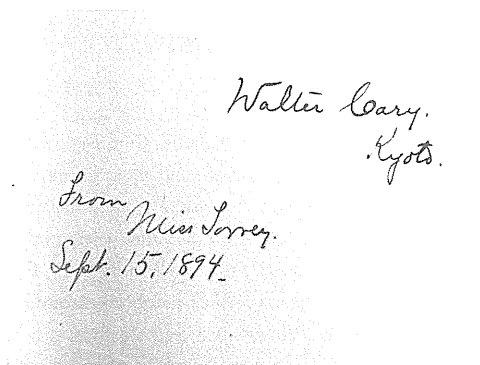 Walter Cary.
Kyoto.
From
Miss Torrey.
Sept. 15, 1894.